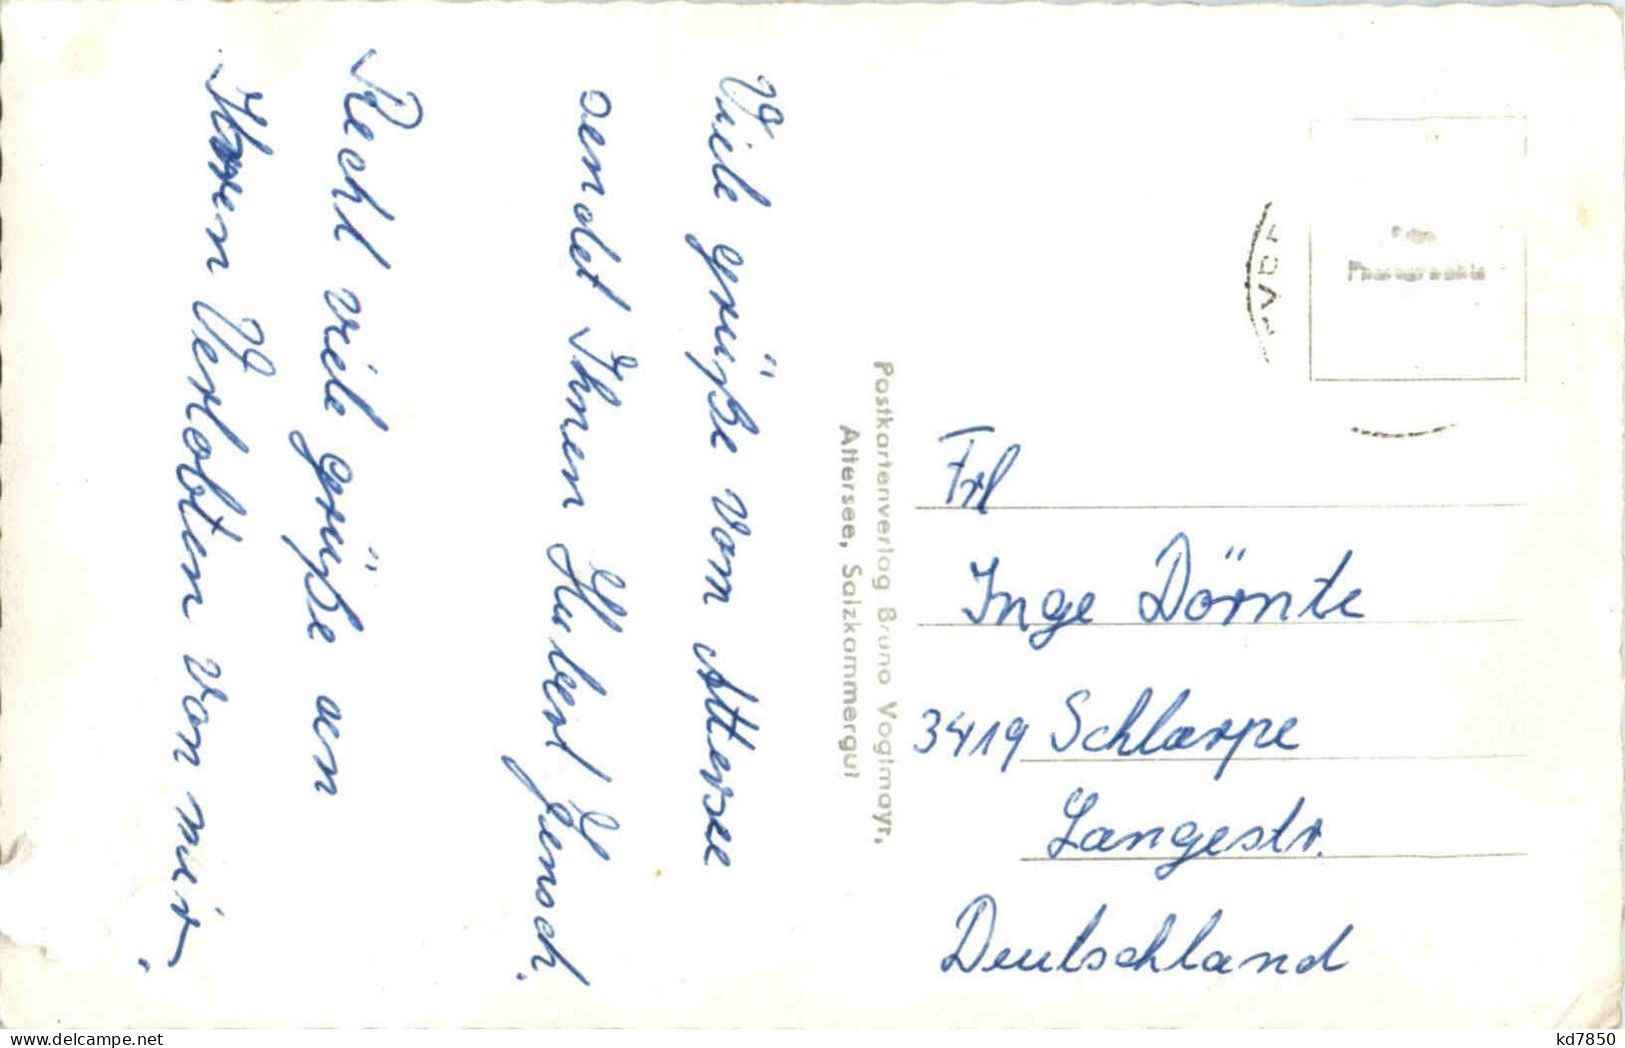 Viele grüße vom Attersee
sendet Ihnen Hubert Jensch.
Recht viele grüße an
Ihren Verlobten von mir.
Postkartenverlag Bruno Voglmayr,
Attersee, Salzkammergut
Frl
Inge Dörnte
3419 Schlarpe
Langestr.
Deutschland
kd7850